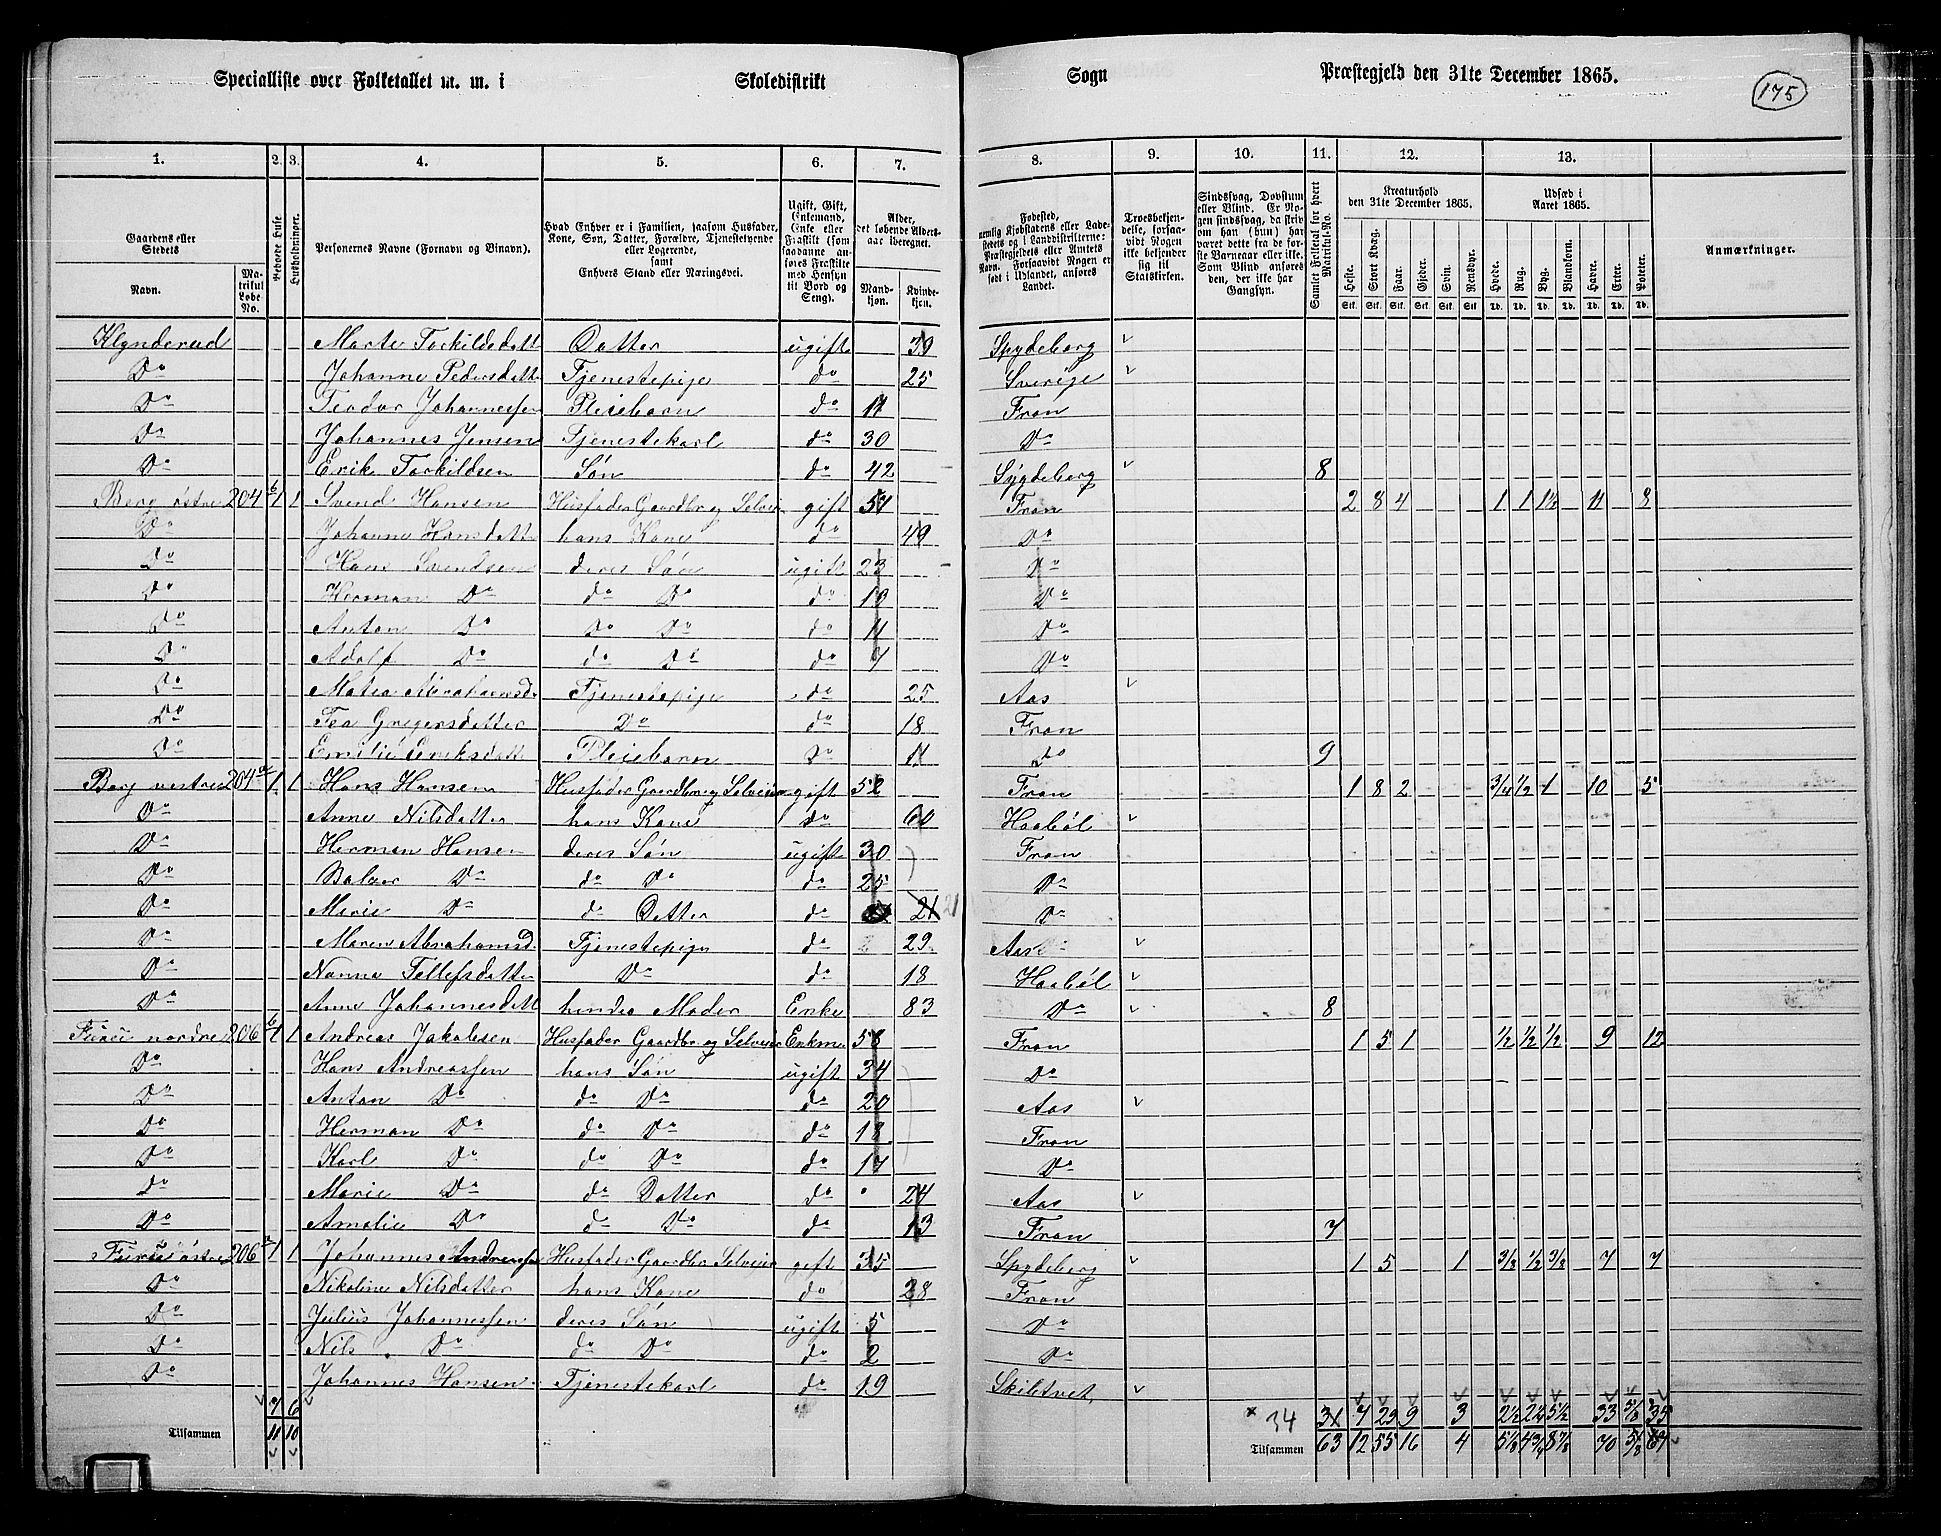 Specialliste over Folketallet m. m. i Skoledistrikt Sogn Præstegjeld den 31te December 1865.
175
1. 2. 3. 4. 5. 6. 7. 8. 9. 10. 11. 12. 13.
Gaardens eller Stedets Navn. Matrikul Løbe-No. Beboede Huse. Husholdninger. Personernes Navne (Fornavn og Tilnavn). Hvad Enhver er i Familien, saasom Husfader, Kone, Søn, Datter, Forældre, Tjenestetyende eller Logerende, samt Enhvers Stand eller Næringsvei. Ugift, Gift, Enkemand, Enke eller Fraskilt (som saadanne anføres Fraskilte med Hensyn til Bord og Seng). Alder, det løbende Aldersaar iberegnet. Mandkjøn. Kvindekjøn.
Fødested, nemlig Kjøbstadens eller Ladestedets og i Landdistrikterne: Præstegjeldets eller Amtets Navn. Forsaavidt Nogen er født i Udlandet, anføres Landet. Troesbekjendelse, forsaavidt Nogen ikke bekjender sig til Statskirken. Sindssvag, Døvstum eller Blind. Er Nogen sindssvag, da skriv om han (hun) har været dette fra de første Barneaar eller ikke. Som Blind anføres den, der ikke har Gangsyn. Samlet Folketal for hvert Matrikul-No. Kreaturhold den 31te December 1865. Udsæd i Aaret 1865. Anmærkninger.
Heste. Stort Kvæg. Faar. Gjeder. Svin. Rensdyr. Hvede. Rug. Byg. Blandkorn. Havre. Erter. Poteter.
Stk. Stk. Stk. Stk. Stk. Stk. Td. Td. Td. Td. Td. Td. Td.
Klynderud Marte Torkildsdatt Datter ugift 39 Spydeberg
Do Johanne Pedersdatte Tjenestepige do 25 Sverige
Do Teodor Johannessen Pleiebarn do 11 Fron
Do Johannes Jensen Tjenestekarl do 30 Do
Do Erik Torkildsen Søn do 42 Spydeberg 8
Berg østre 204 b 1 1 Svend Hansen Husfader Gaardbr og Selveier gift 51 Fron 2 8 4 1 1 1½ 11 8
Do Johanne Hansdatte hans Kone do 49 Do
Do Hans Svendsen deres Søn ugift 23 Do
Do Herman Do do Do do 19 Do
Do Anton Do Do Do do 11 Do
Do Adolf Do do Do do 7 Do
Do Matea Abrahamsd. Tjenestepige do 25 Aas
Do Tea Gregersdatter Do do 18 Fron
Do Emilie Eriksdatt Pleiebarn Do 11 Do 9
Berg vestre 204 a 1 1 Hans Hansen Husfader Gaardbr og Selveier gift 52 Fron 1 8 2 3/4 1/2 1 10 5
Do Anne Nilsdatter hans Kone Do 60 Haabøl
Do Herman Hansen deres Søn ugift 30 Fron
Do Do do Do do 25 Do
Do Marie Do do Datter do 21 21 Do
Do Maren Abrahamsd. Tjenestepige do 29 Aas
Do Nanna Tellefsdatter Do do 18 Haabøl
Do Anne Johannesdatt hendes Moder Enke 83 Do 8
nordre 206 b 1 1 Andreas Jakobsen Husfader Gaardbr og Selveier Enkm 58 Fron 1 5 1 1/2 1/2 1/2 9 12
Do Hans Andreassen hans Søn ugift 34 Do
Do Anton Do do Do do 20 Aas
Do Herman Do do Do do 18 Fron
Do Karl Do do Do do 17 Do
Do Marie Do do Datter do 24 Aas
Do Amalie Do do Do do 13 Fron 7
østre 206 a 1 1 Johannes Andreassen Husfader Gaardbr Selveier gift 35 Spydeberg 1 5 1 3/2 1/2 3/2 7 7
Do Nikoline Nilsdatter hans Kone do 28 Fron
Do Julius Johannessen deres Søn ugift 5 Do
Do Nils Do do Do do 2 Do
Do Johannes Hansen Tjenestekarl do 19 Skibtvet
7 6 34 7 29 9 3 2½ 2¼ 5½ 33 5/8 35
Tilsammen 10 10 Tilsammen 63 12 55 16 4 70 67